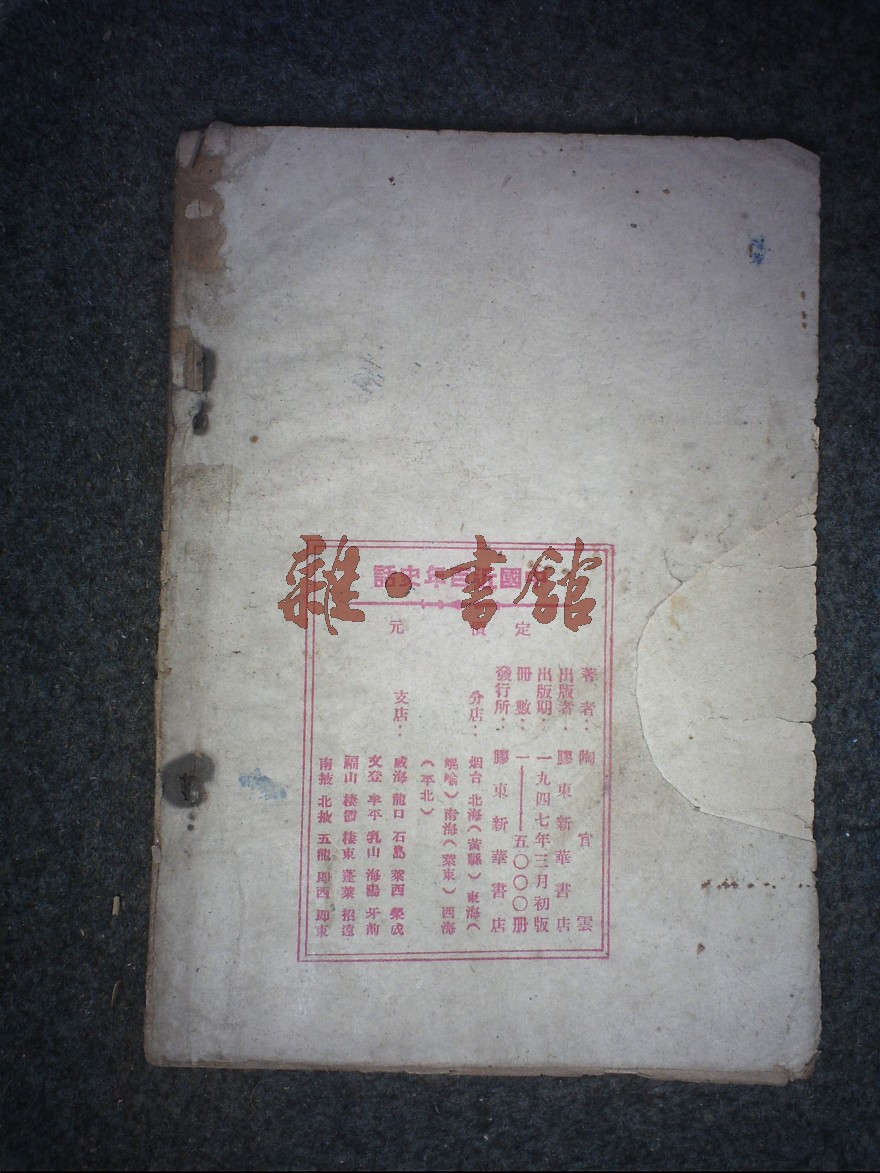 中國近百年史話
雜·書館
定價　元
著者：陶官雲
出版者：膠東新華書店
出版期：一九四七年三月初版
冊數：一——五〇〇〇册
發行所：膠東新華書店
分店：烟台 北海（黃縣）東海（
崐嵛）南海（萊東）西海
（平北）
支店：威海 龍口 石島 萊西 榮成
文登 牟平 乳山 海陽 牙前
福山 棲霞 棲東 蓬萊 招遠
南掖 北掖 五龍 即西 即東